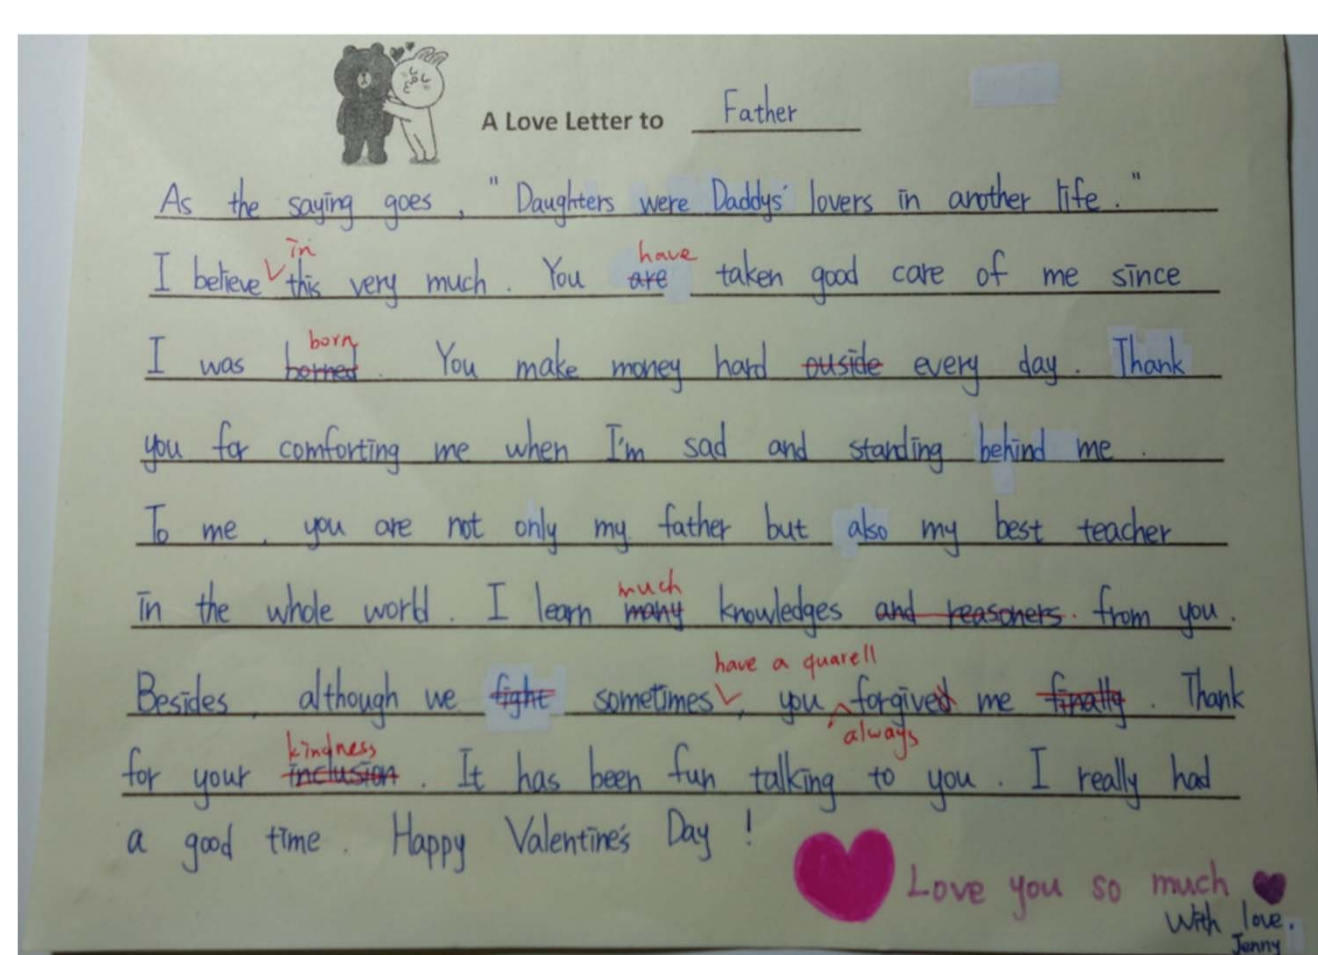 A Love Letter to Father
As the saying goes, "Daughters were Daddys' lovers in another life."
in have
I believe this very much. You are taken good care of me since
born
I was borned. You make money hard ouside every day. Thank
you for comforting me when I'm sad and standing behind me.
To me, you are not only my father but also my best teacher
much
in the whole world. I learn many knowledges and reasoners from you.
have a quarell
Besides, although we fight sometimes, you forgived me finally. Thank
kindness always
for your inclusion. It has been fun talking to you. I really had
a good time. Happy Valentine's Day!
Love you so much
With love,
Jenny